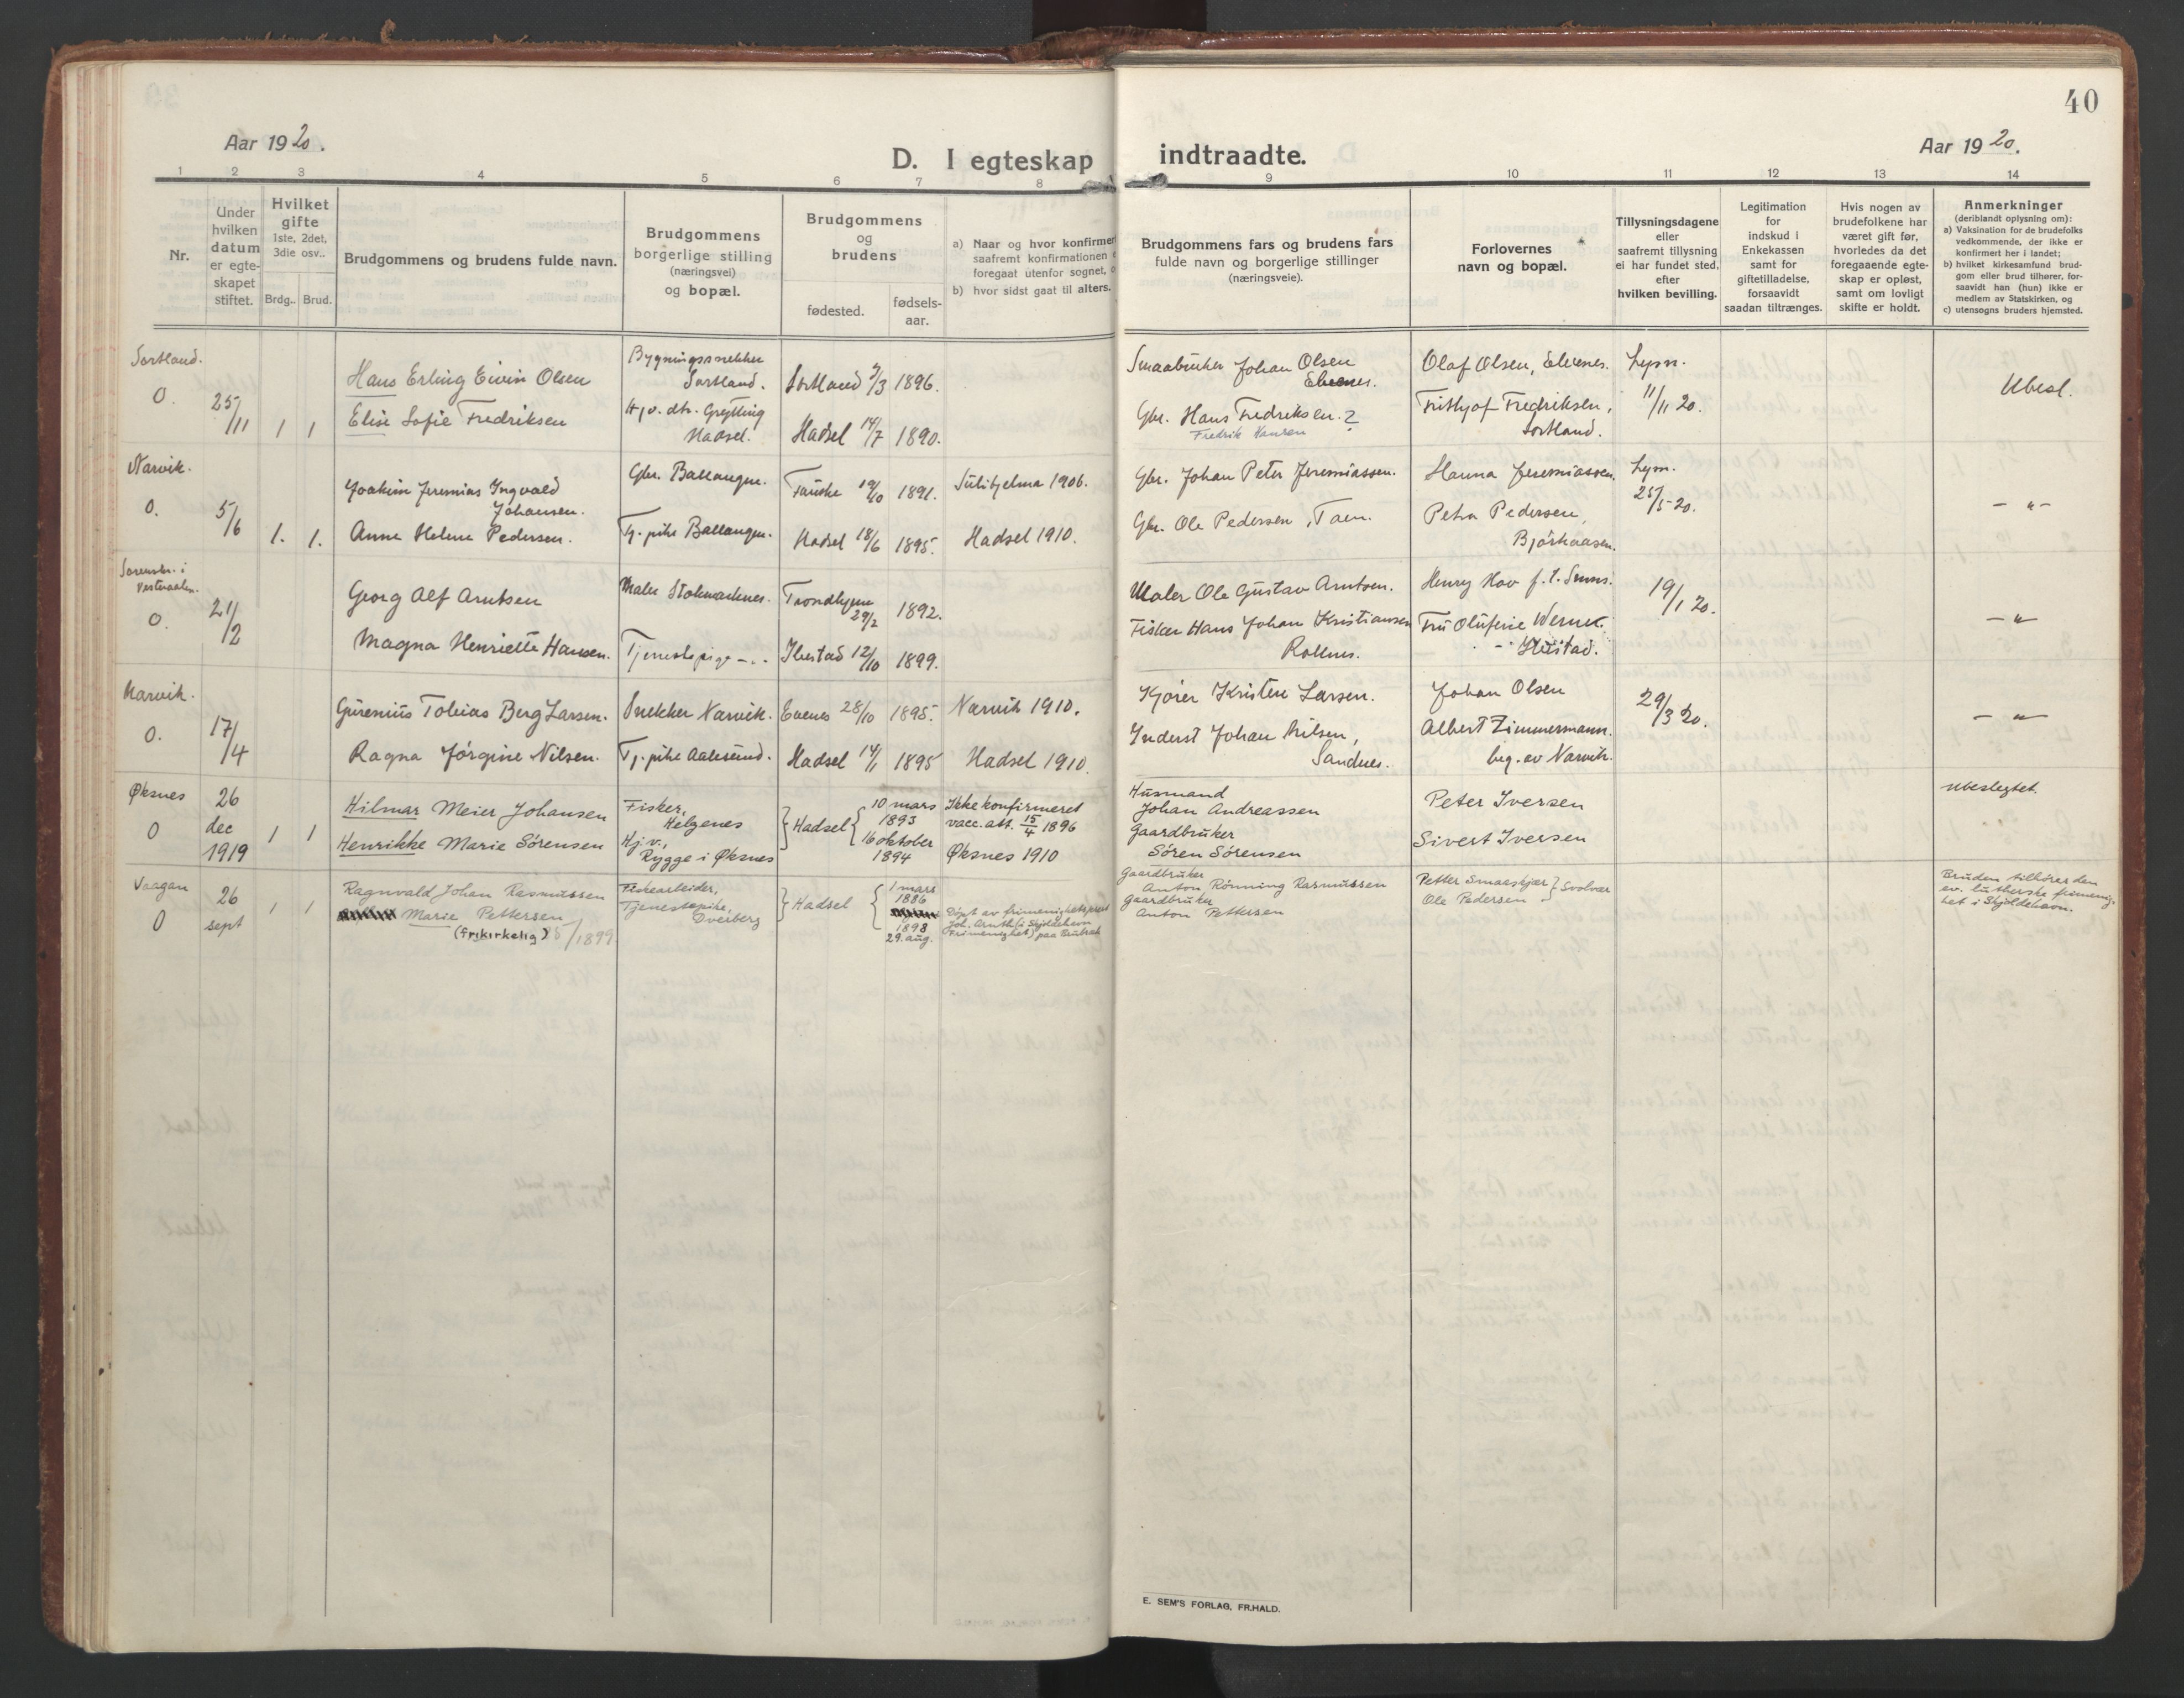 40
Aar 1920.
D. I egteskap indtraadte.
Aar 1920.
1 2 3 4 5 6 7 8 9 10 11 12 13 14
Nr.
Under hvilken datum er egte-skapet stiftet.
Hvilket gifte
1ste, 2det, 3die osv..
Brdg.. Brud.
Brudgommens og brudens fulde navn.
Brudgommens borgerlige stilling (næringsvei) og bopæl.
Brudgommens og brudens
fødested.
fødsels-aar.
a) Naar og hvor konfirmer
saafremt konfirmationen
foregaat utenfor sognet,
b) hvor sidst gaat til alters.
Brudgommens fars og brudens fars
fulde navn og borgerlige stillinger
(næringsveie).
Forlovernes
navn og bopæl.
Tillysningsdagene
eller
saafremt tillysning
ei har fundet sted,
efter
hvilken bevilling.
Legitimation
for
indskud i
Enkekassen
samt for
giftetilladelse,
forsaavidt
saadan tiltrænges.
Hvis nogen av
brudefolkene har
været gift før,
hvorledes da det
foregaaende egte-
skap er opløst,
samt om lovligt
skifte er holdt.
Anmerkninger
(deriblandt oplysning om):
a) Vaksination for de brudefolks
vedkommende, der ikke er
konfirmert her i landet;
b) hvilket kirkesamfund brud-
gom eller brud tilhører, for-
saavidt han (hun) ikke er
medlem av Statskirken, og
c) utensogns bruders hjemsted.
Sortland.
O. 25/11 1 1
Hans Erling Eivin Olsen
Bygningssnekker
Sortland.
Sortland 9/3 1896.
Smaabruker Johan Olsen
Elvenes.
Olaf Olsen, Elvenes.
Lysn.
11/11 20.
Ubesl.
Elise Sofie Fredriksen
Hj.v. dtr. Grytting
Hadsel.
Hadsel 14/7 1890.
Gbr. Hans Fredriksen. ?
Fredrik Hansen
Frithjof Fredriksen,
Sortland.
Narvik.
O. 5/6 1. 1.
Joakim Jeremias Ingvald
Johansen.
Gbr. Ballangen.
Fauske 19/10 1891.
Sulitjelma 1906.
Gbr. Johan Peter Jeremiassen.
Hanna Jeremiassen.
Lysn.
25/5 20.
- " -
Anne Helene Pedersen.
Tj. pike Ballangen.
Hadsel 18/6 1895.
Hadsel 1910.
Gbr. Ole Pedersen, Taen.
Petra Pedersen,
Bjørkaasen.
Sorenskr. i
Vesteraalen.
O. 21/2
Georg Alf Arntsen
Maler Stokmarknes.
Trondhjem
29/2 1892.
Maler Ole Gustav Arntsen.
Henry Hov f. t. Smns.
19/1 20.
- " -
Magna Henriette Hansen.
Tjenestepige - " -
Ibestad 12/10 1899.
Fisker Hans Johan Kristiansen
Rollnes.
Fru Olufine Werner.
Narvik.
O. 17/4
Gurenius Tobias Berg Larsen.
Snekker Narvik.
Evenes 28/10 1895.
Narvik 1910.
Kjører Kristen Larsen.
Johan Olsen
29/3 20.
- " -
Ragna Jørgine Nilsen.
Tj. pike Aalesund.
Hadsel 14/1 1895
Hadsel 1910.
Inderst Johan Nilsen,
Sandnes.
Albert Zimmermann.
beg. av Narvik.
Øksnes
O 26 dec 1919 1 1
Hilmar Meier Johansen
Fisker,
Helgenes
Hadsel
10 mars
1893
Ikke konfirmeret
vacc. att. 15/4 1896
Husmand
Johan Andreassen
Peter Iversen
Ubeslegtet.
Henrikke Marie Sörensen
Hj.v.,
Rygge i Øksnes
16 oktober
1894
Øksnes 1910
Gaardbruker
Sören Sörensen
Sivert Iversen
Vaagan
O 26 sept 1 1
Ragnvald Johan Rasmussen
Fiskearbeider,
Hadsel
1 mars
1886
Gaardbruker
Anton Rönning Rasmussen
Petter Smaaskjær
Ole Pedersen
Svolvær
Bruden tilhører den
ev. lutherske frimenig-
het i Skjoldehavn.
Marie Pettersen
(frikirkelig) /1899.
Tjenestepike,
Dverberg
1898
29. aug.
Döpt av frimenighetsprest
Joh. Arnth (i Skjoldehavn
Frimenighet) paa
Gaardbruker
Anton Pettersen
E. SEM'S FORLAG, FR.HALD.